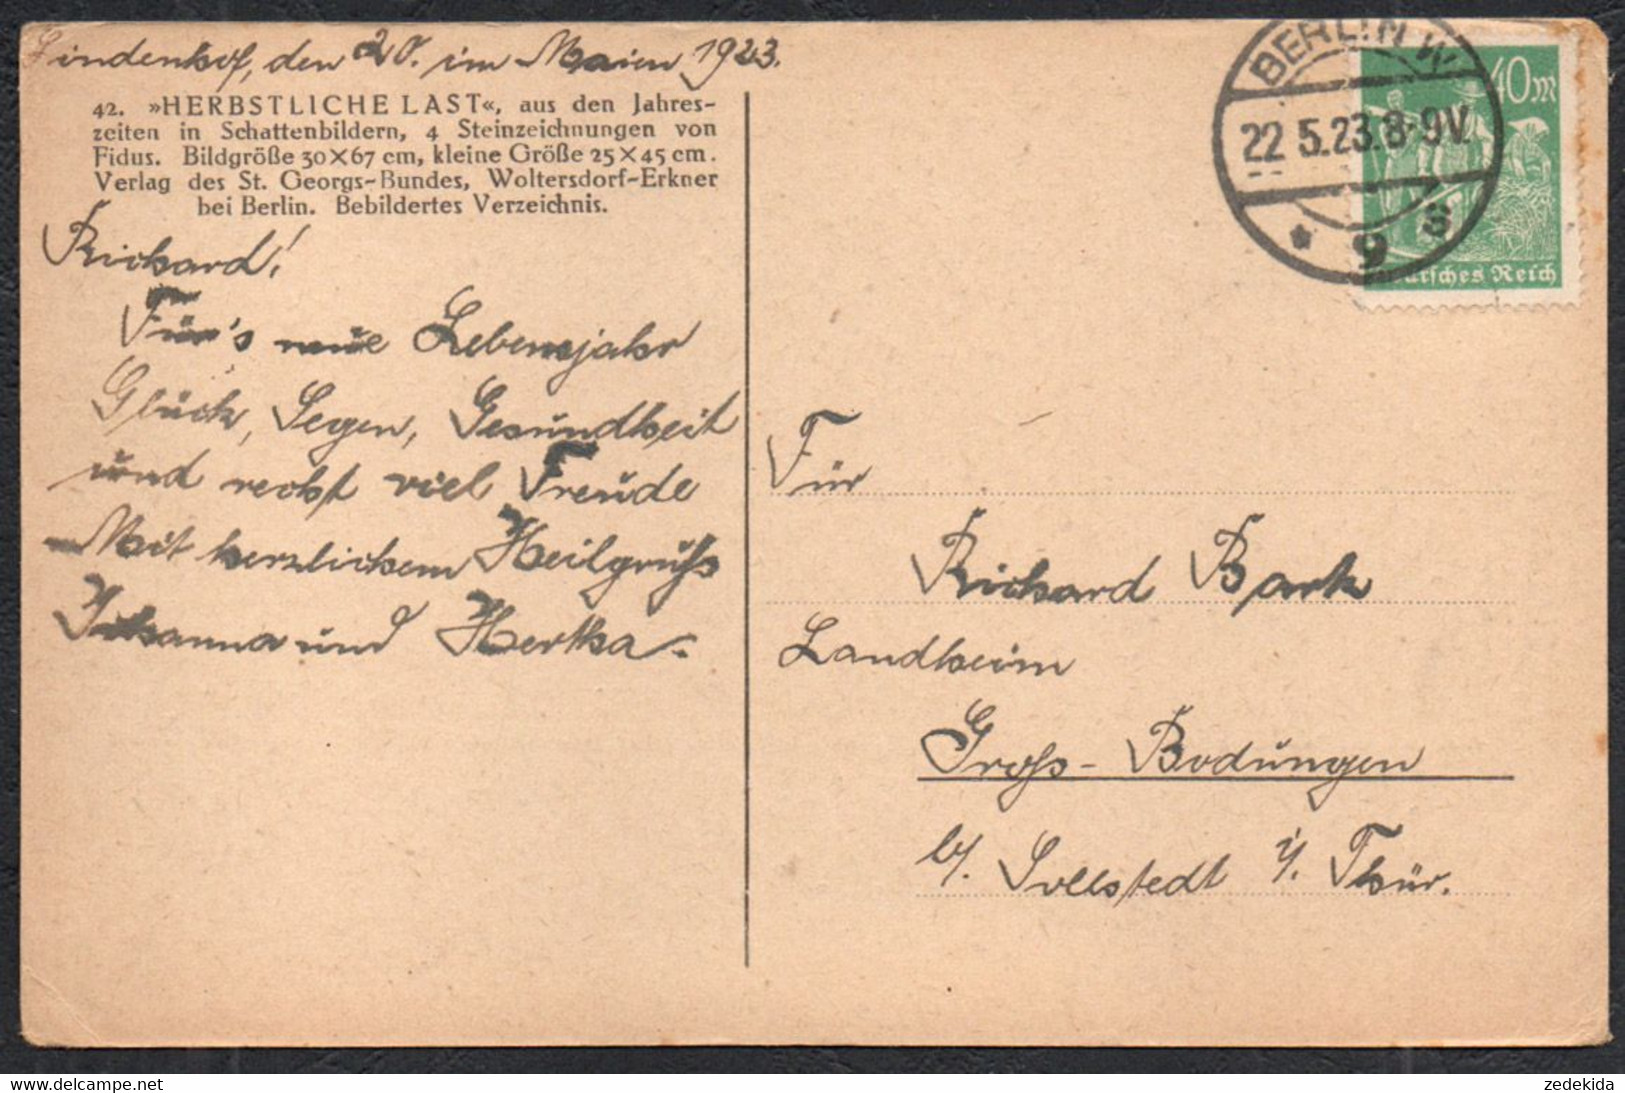 Lindenhof, den 20. im Maien 1923.
42. »HERBSTLICHE LAST«, aus den Jahres-
zeiten in Schattenbildern, 4 Steinzeichnungen von
Fidus. Bildgröße 30×67 cm, kleine Größe 25×45 cm.
Verlag des St. Georgs-Bundes, Woltersdorf-Erkner
bei Berlin. Bebildertes Verzeichnis.
Richard!
Für's neue Lebensjahr
Glück, Segen, Gesundheit
und recht viel Freude
Mit herzlichem Heilgruß
Johanna und Hertha.
BERLIN W
22.5.23.8-9V.
* 9 s
40M
Deutsches Reich
Für
Richard Bark
Landheim
Groß-Bodungen
b/. Sollstedt i/. Thür.
zedekida